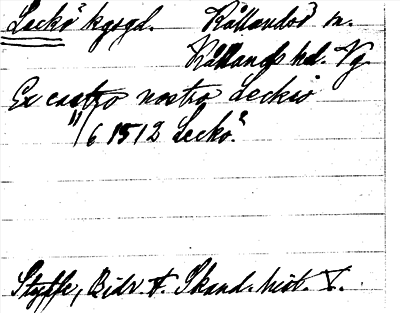 Läckö kgsgd. Kållandsö sn.
Kållands hd. Vg.
Ex castro nostro Leckiö
11/6 1512 Leckö.
Styffe, Bidr. t. Skand. hist. V.